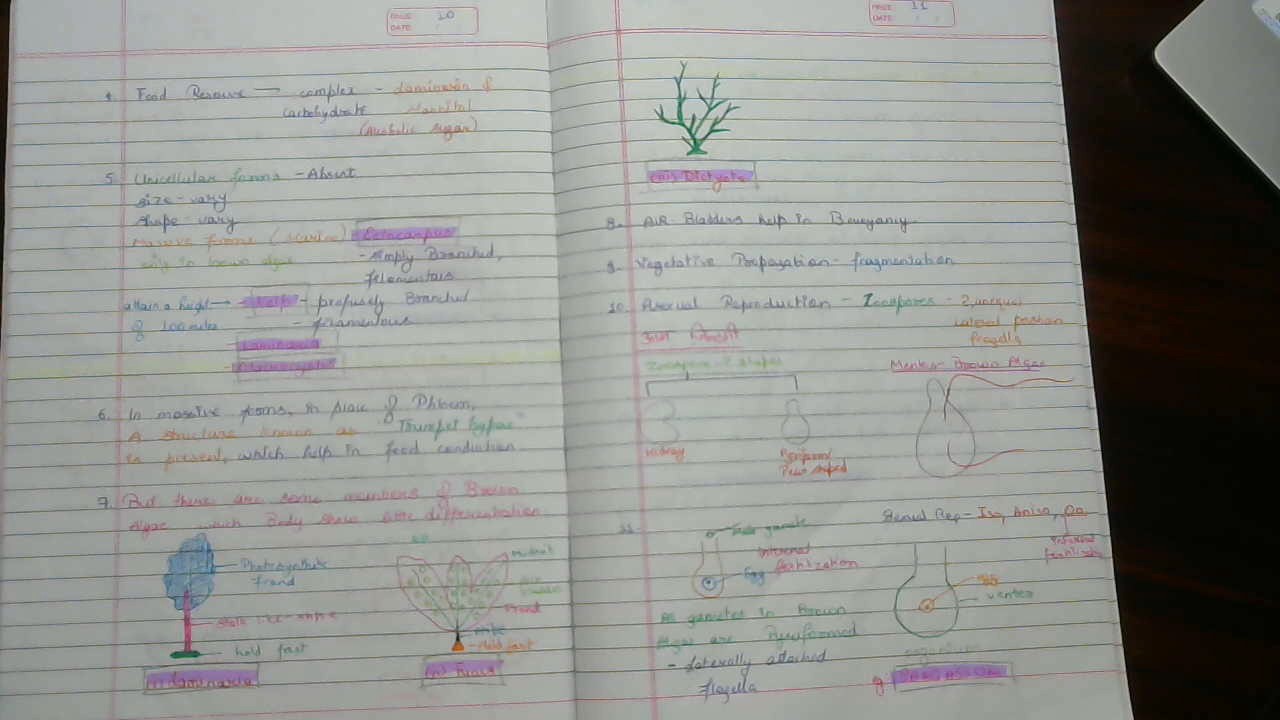 PAGE 10
DATE
4. Food Reserve — complex - Laminarin &
carbohydrate Mannitol
(Alcoholic sugar)
5. Unicellular forms - Absent
size - vary
shape - vary
Massive forms Ectocarpus
only in brown algae - simply Branched,
filamentous
attain a height → Kelps - profusely Branched
of 100 metres - filamentous
Laminaria
6. In massive forms, in place of Phloem,
A structure known as "Trumpet hyphae"
is present, which help in food conduction
7. But there are some members of Brown
Algae which Body show little differentiation
Photosynthetic
frond
stalk like - stipe
hold fast
(i) Laminaria
Midrib
Air
bladder
Frond
stipe
- Hold fast
(ii) Fucus
PAGE 11
DATE
(iii) Dictyota
8. AIR-Bladders help in Bouyancy
9. Vegetative Propagation - fragmentation
10. Asexual Reproduction - Zoospores - 2, unequal
lateral position
flagella
Zoospore - 2 shapes
Kidney
Pyriform/
Pear shaped
- Brown Algae
11.
Sexual Rep - Iso, Aniso, Oo
Internal
fertilization
Male gamete
Internal
fertilization
Egg
Egg
venter
All gametes in Brown
Algae are Pyriformed
- laterally attached
flagella